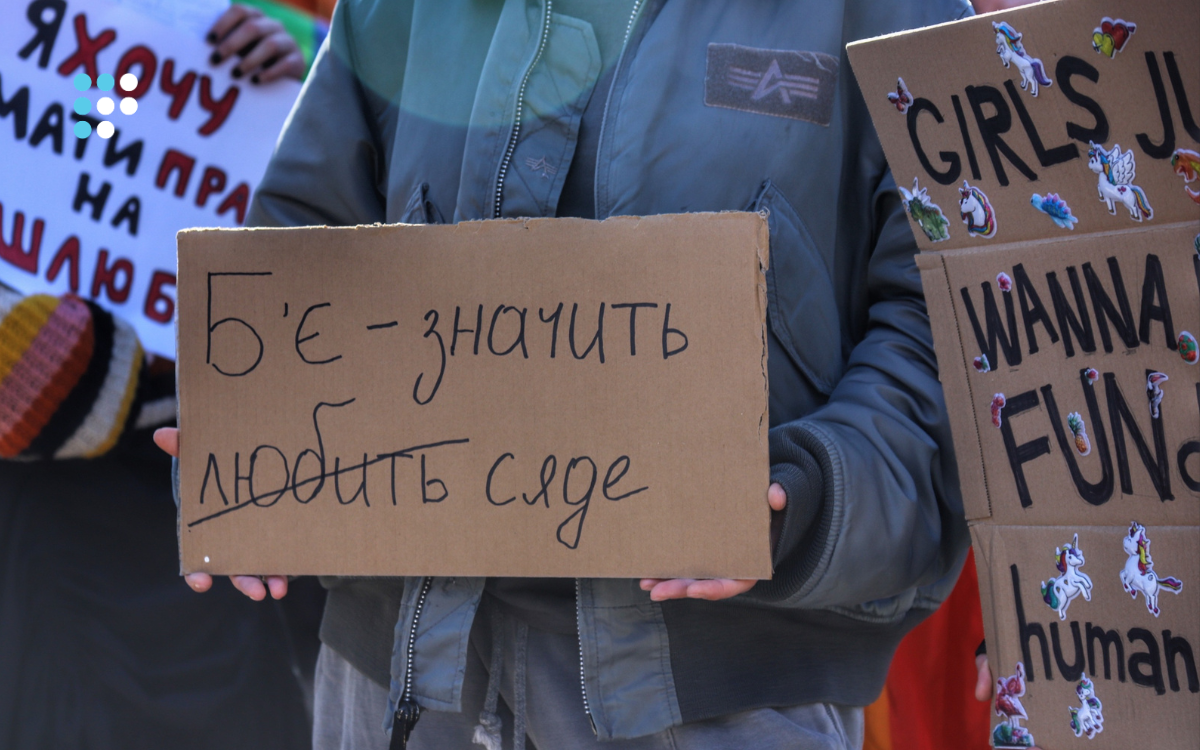 Я ХОЧУ
МАТИ ПРА
НА
ШЛЮБ
Б'є – значить
любить сяде
GIRLS JU
WANNA
FUN
human